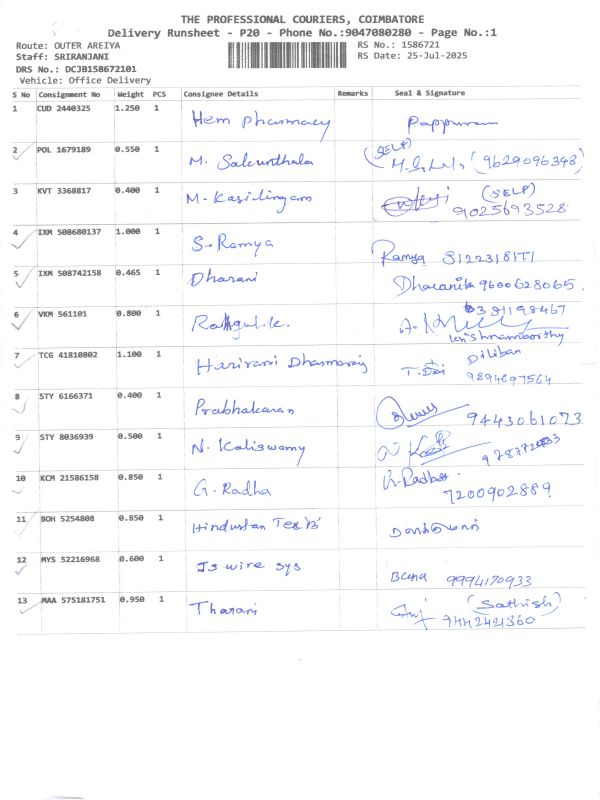 THE PROFESSIONAL COURIERS, COIMBATORE
Delivery Runsheet - P20 - Phone No.:9047080280 - Page No.:1
Route: OUTER AREIYA RS No.: 1586721
Staff: SRIRANJANI RS Date: 25-Jul-2025
DRS No.: DCJB158672101
Vehicle: Office Delivery
S No Consignment No Weight PCS Consignee Details Remarks Seal & Signature
1 CUD 2440325 1.250 1 Hem pharmacy
2 POL 1679189 0.550 1 M. Sakunthala (SELF) (9629096348)
3 KVT 3368817 0.400 1 M. Kasilingam (SELF) 9025693528
4 IXM 508680137 1.000 1 S. Ramya Ramya
5 IXM 508742158 0.465 1 Dharani 9600628065.
6 VKM 561101 0.800 1 Ragul.k.
7 TCG 41810802 1.100 1 Harirani Dharmaraj Diliban
8 STY 6166371 0.400 1 Prabhakaran 9443061073
9 STY 8036939 0.500 1 N. Kaliswamy
10 KCM 21586158 0.850 1 G. Radha 7200902889
11 BOH 5254808 0.850 1 Hindustan
12 MYS 52216968 0.600 1 Js wire sys 9994170933
13 MAA 575181751 0.950 1 Tharani (Sathish) 9442421360